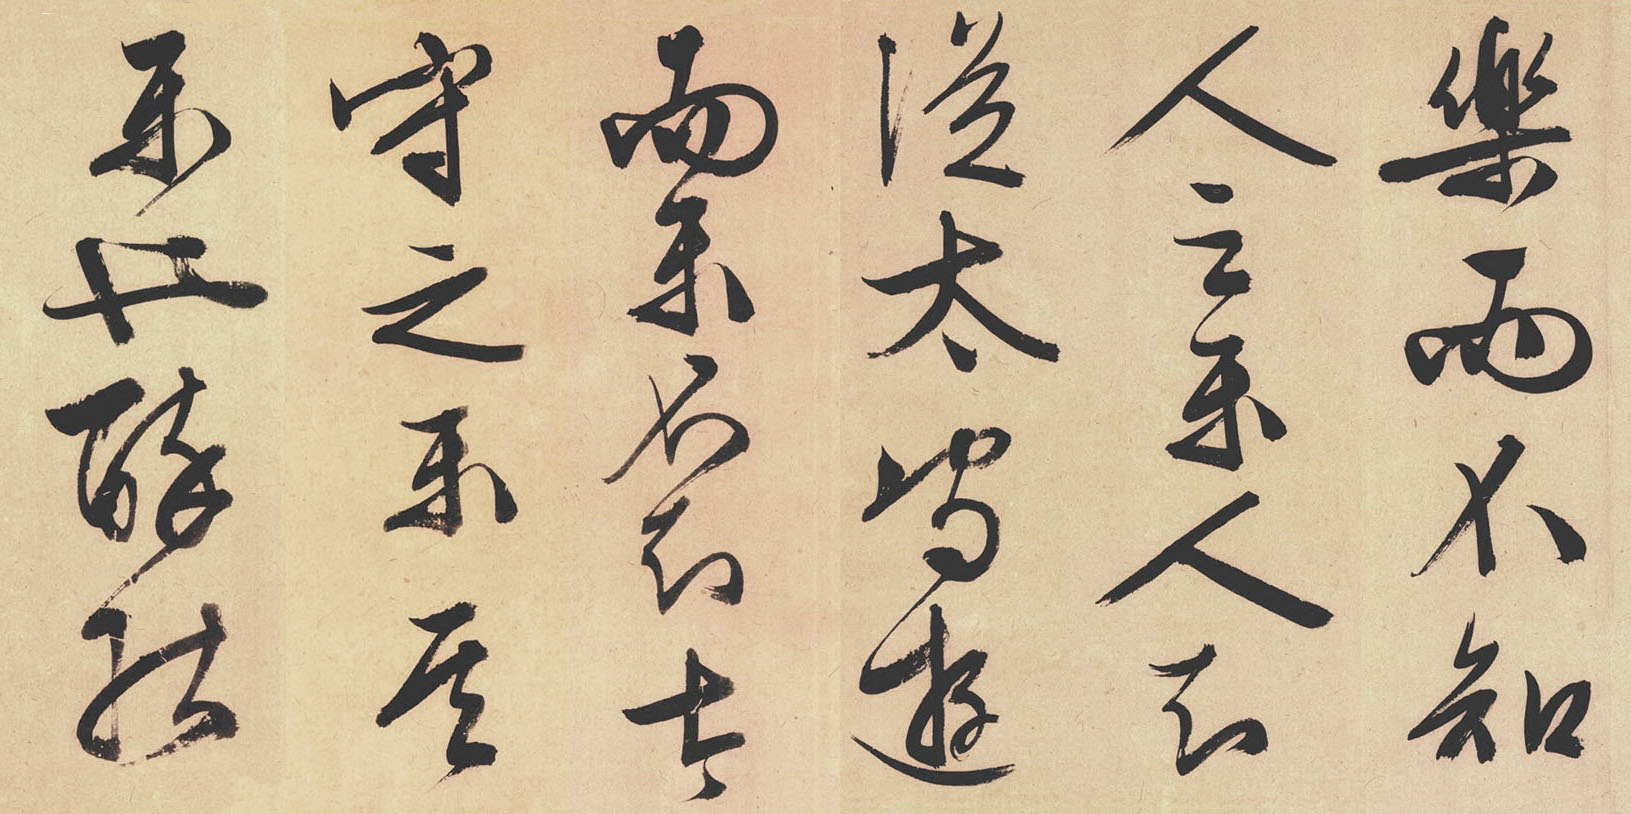 樂而不知
人之樂人知
從太守遊
而樂不知太
守之樂其
樂也醉能